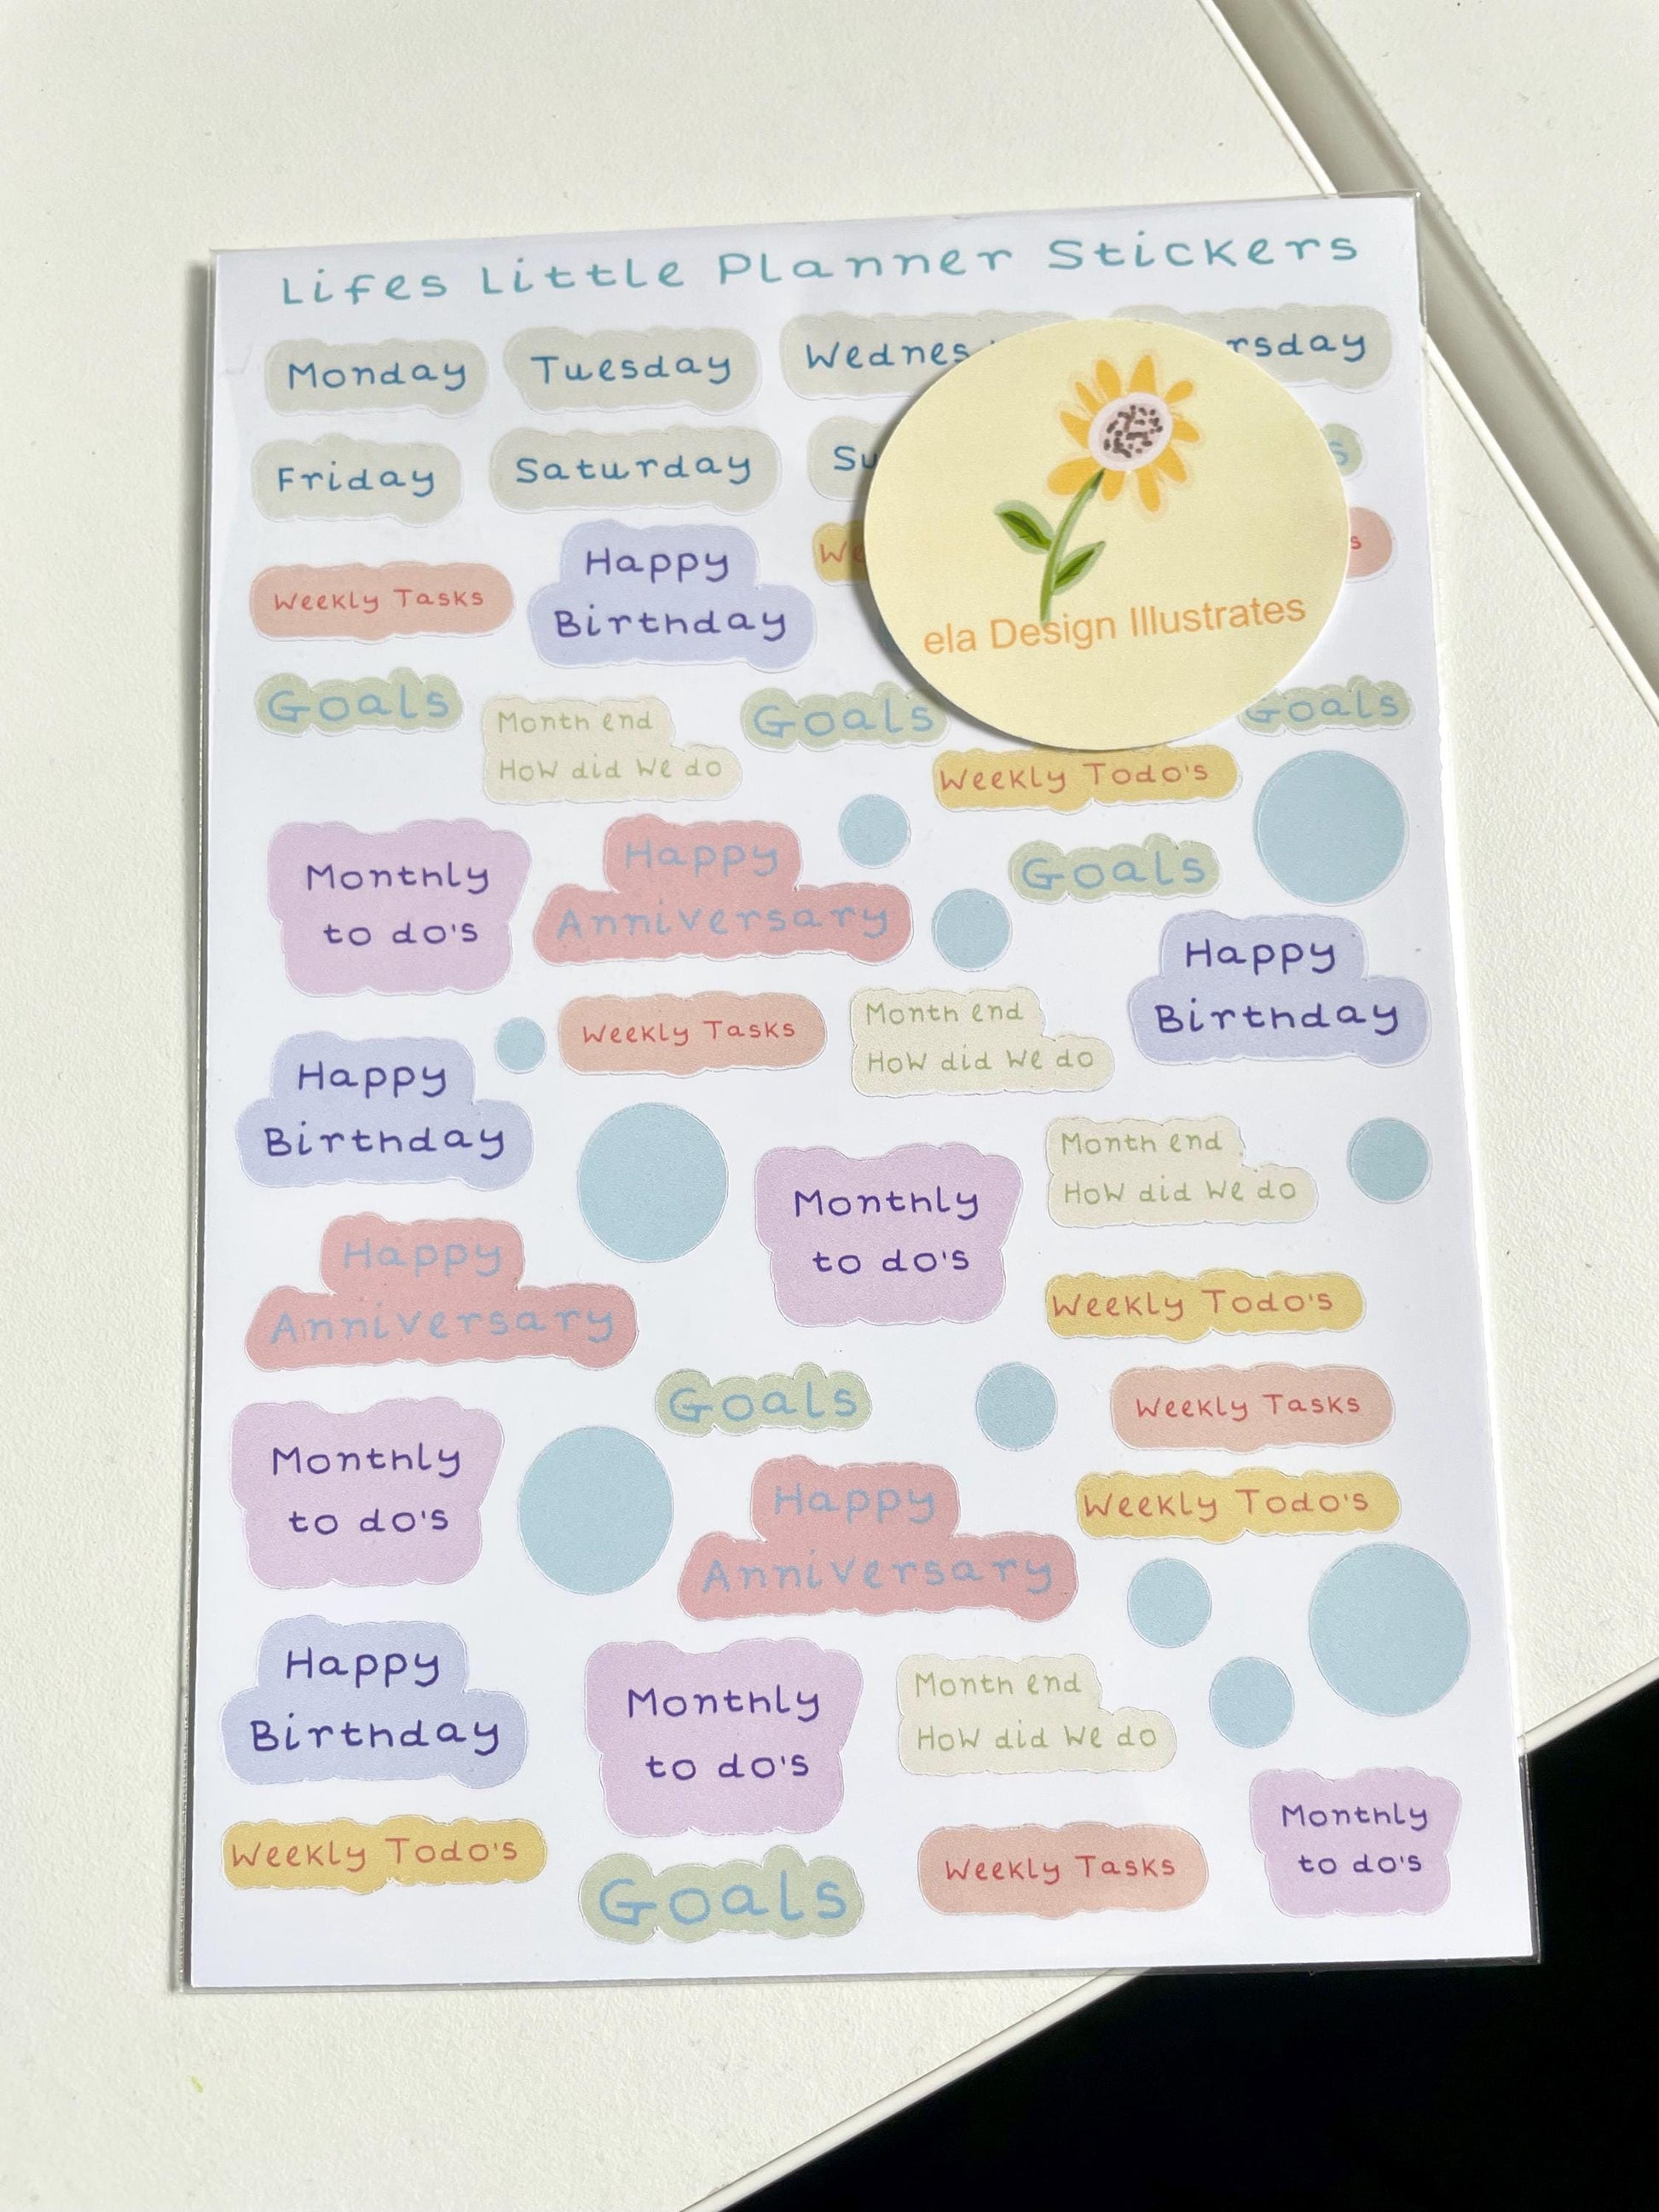 Lifes Little Planner Stickers
Monday
Tuesday
Wednes
rsday
Friday
Saturday
Su
s
Weekly Tasks
Happy
Birthday
We
s
ela Design Illustrates
Goals
Month end
How did we do
Goals
Goals
Weekly Todo's
Monthly
to do's
Happy
Anniversary
Goals
Happy
Birthday
Weekly Tasks
Month end
How did we do
Happy
Birthday
Month end
How did we do
Monthly
to do's
Happy
Anniversary
Weekly Todo's
Goals
Weekly Tasks
Monthly
to do's
Happy
Anniversary
Weekly Todo's
Happy
Birthday
Monthly
to do's
Month end
How did we do
Weekly Todo's
Goals
Weekly Tasks
Monthly
to do's